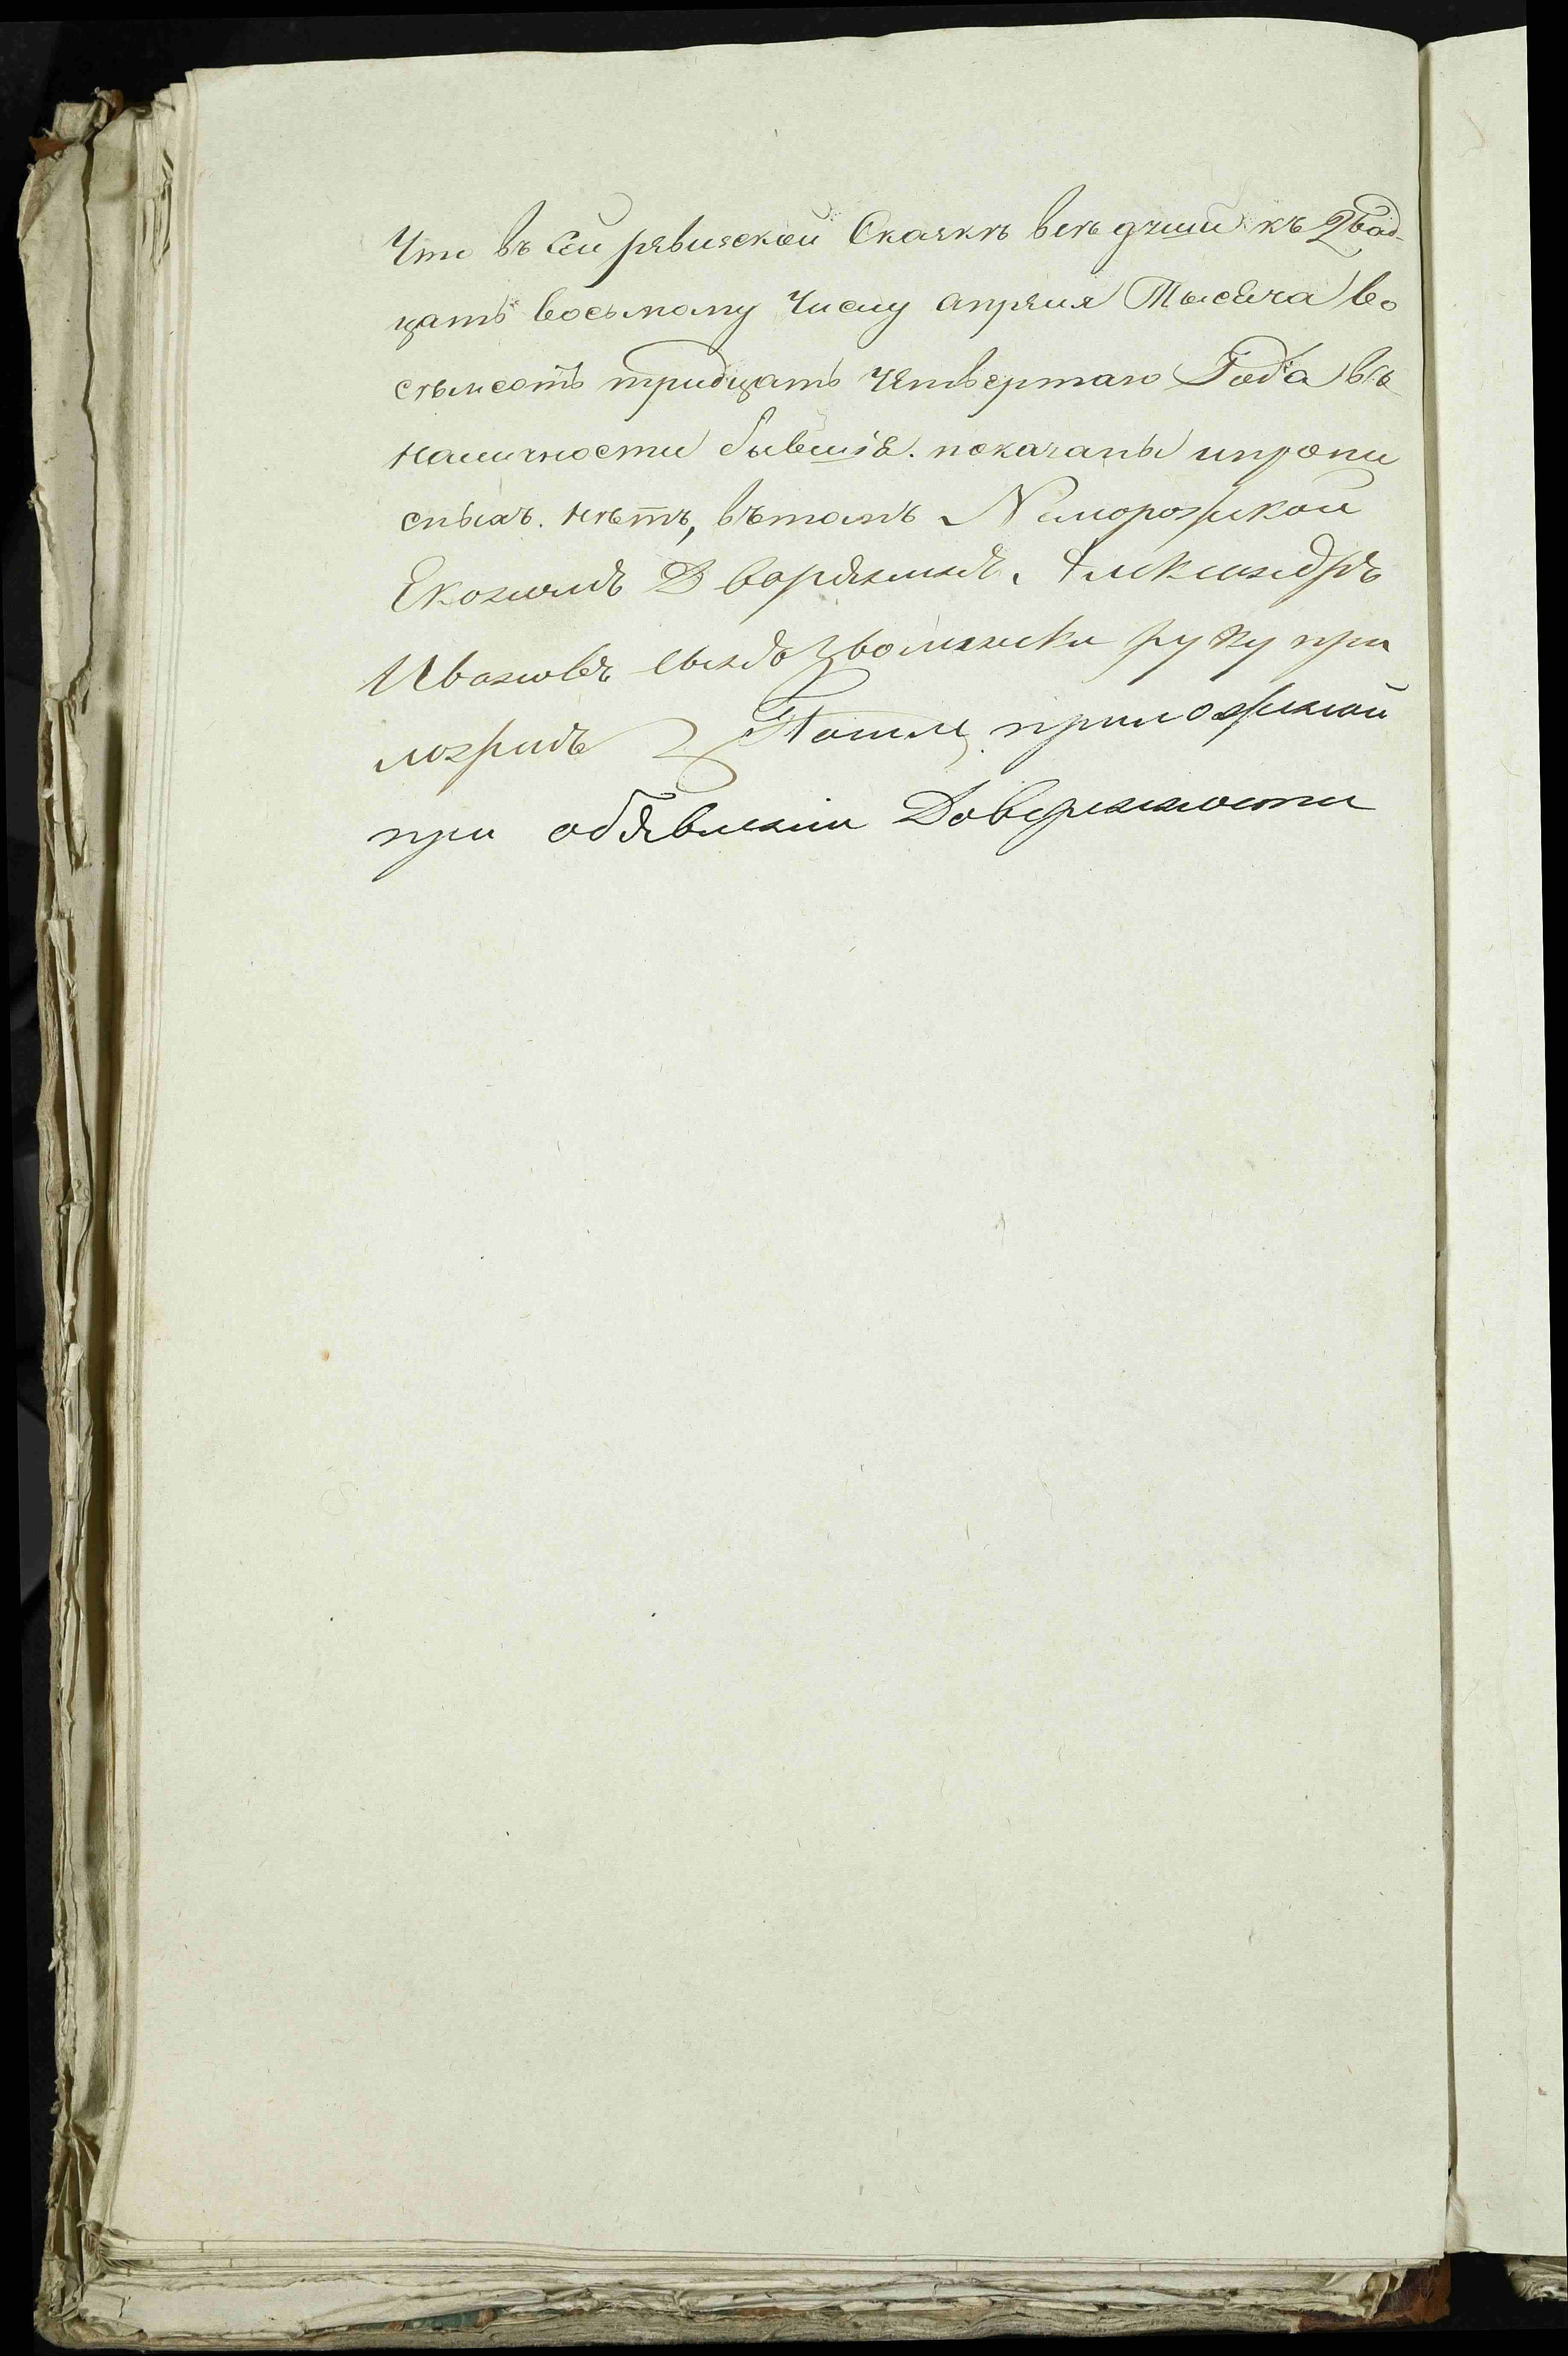 Что въ сей ревизской Сказкѣ всѣ души къ Двад-
цать восьмому числу апреля Тысеча во
съмсотъ тридцать четвертаго Года въ
наличности бывшїе. показаны ипропи
сныхъ. нѣтъ, втомъ
Економъ Дворянинъ. Александръ
Ивановъ сынъ руку при
ложилъ приложеной
при объявлении Доверенности